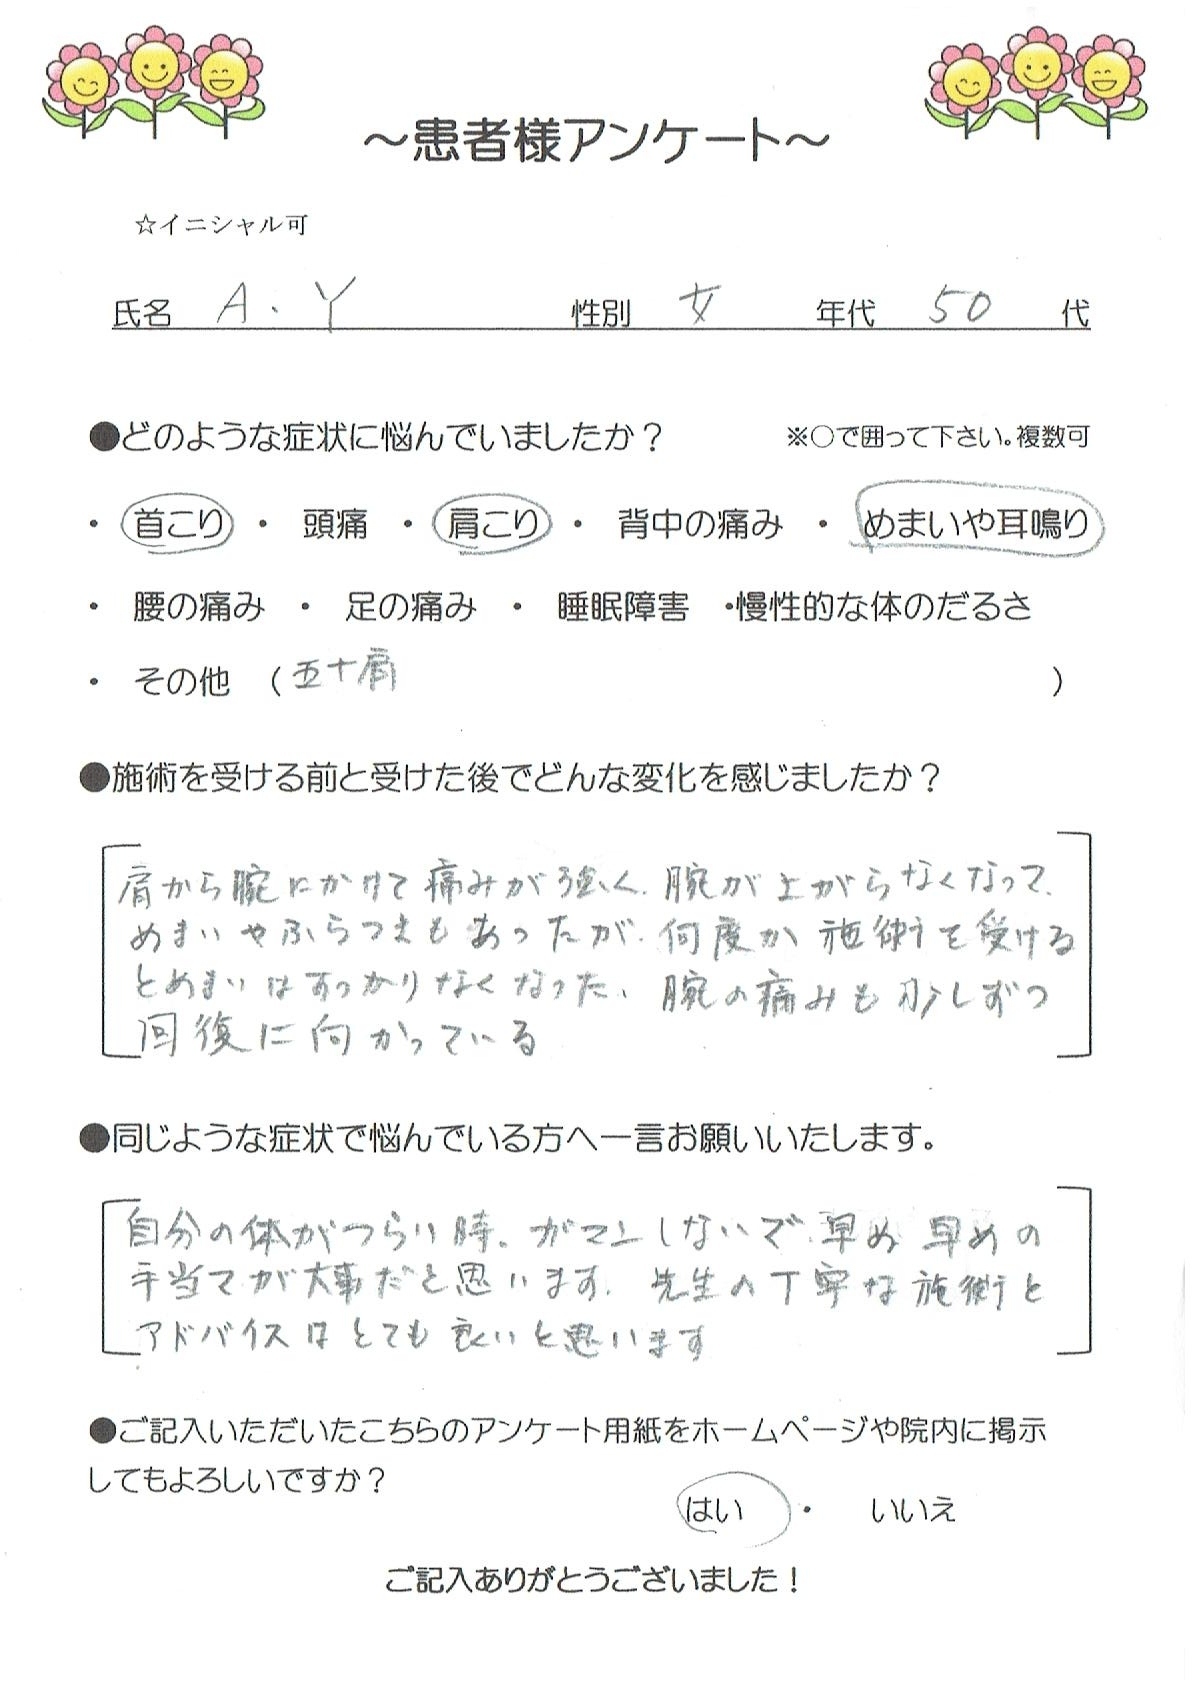 ～患者様アンケート～
☆イニシャル可
氏名 A.Y 性別 女 年代 50 代
●どのような症状に悩んでいましたか？ ※○で囲って下さい。複数可
・ 首こり ・ 頭痛 ・ 肩こり ・ 背中の痛み ・ めまいや耳鳴り
・ 腰の痛み ・ 足の痛み ・ 睡眠障害 ・慢性的な体のだるさ
・ その他 （五十肩 ）
●施術を受ける前と受けた後でどんな変化を感じましたか？
肩から腕にかけて痛みが強く、腕が上がらなくなって、
めまいやふらつきもあったが、何度か施術を受ける
とめまいはすっかりなくなった、腕の痛みも少しずつ
回復に向かっている
●同じような症状で悩んでいる方へ一言お願いいたします。
自分の体がつらい時。ガマンしないで、早め早めの
手当てが大事だと思います、先生の丁寧な施術と
アドバイスはとても良いと思います
●ご記入いただいたこちらのアンケート用紙をホームページや院内に掲示
してもよろしいですか？
はい ・ いいえ
ご記入ありがとうございました！